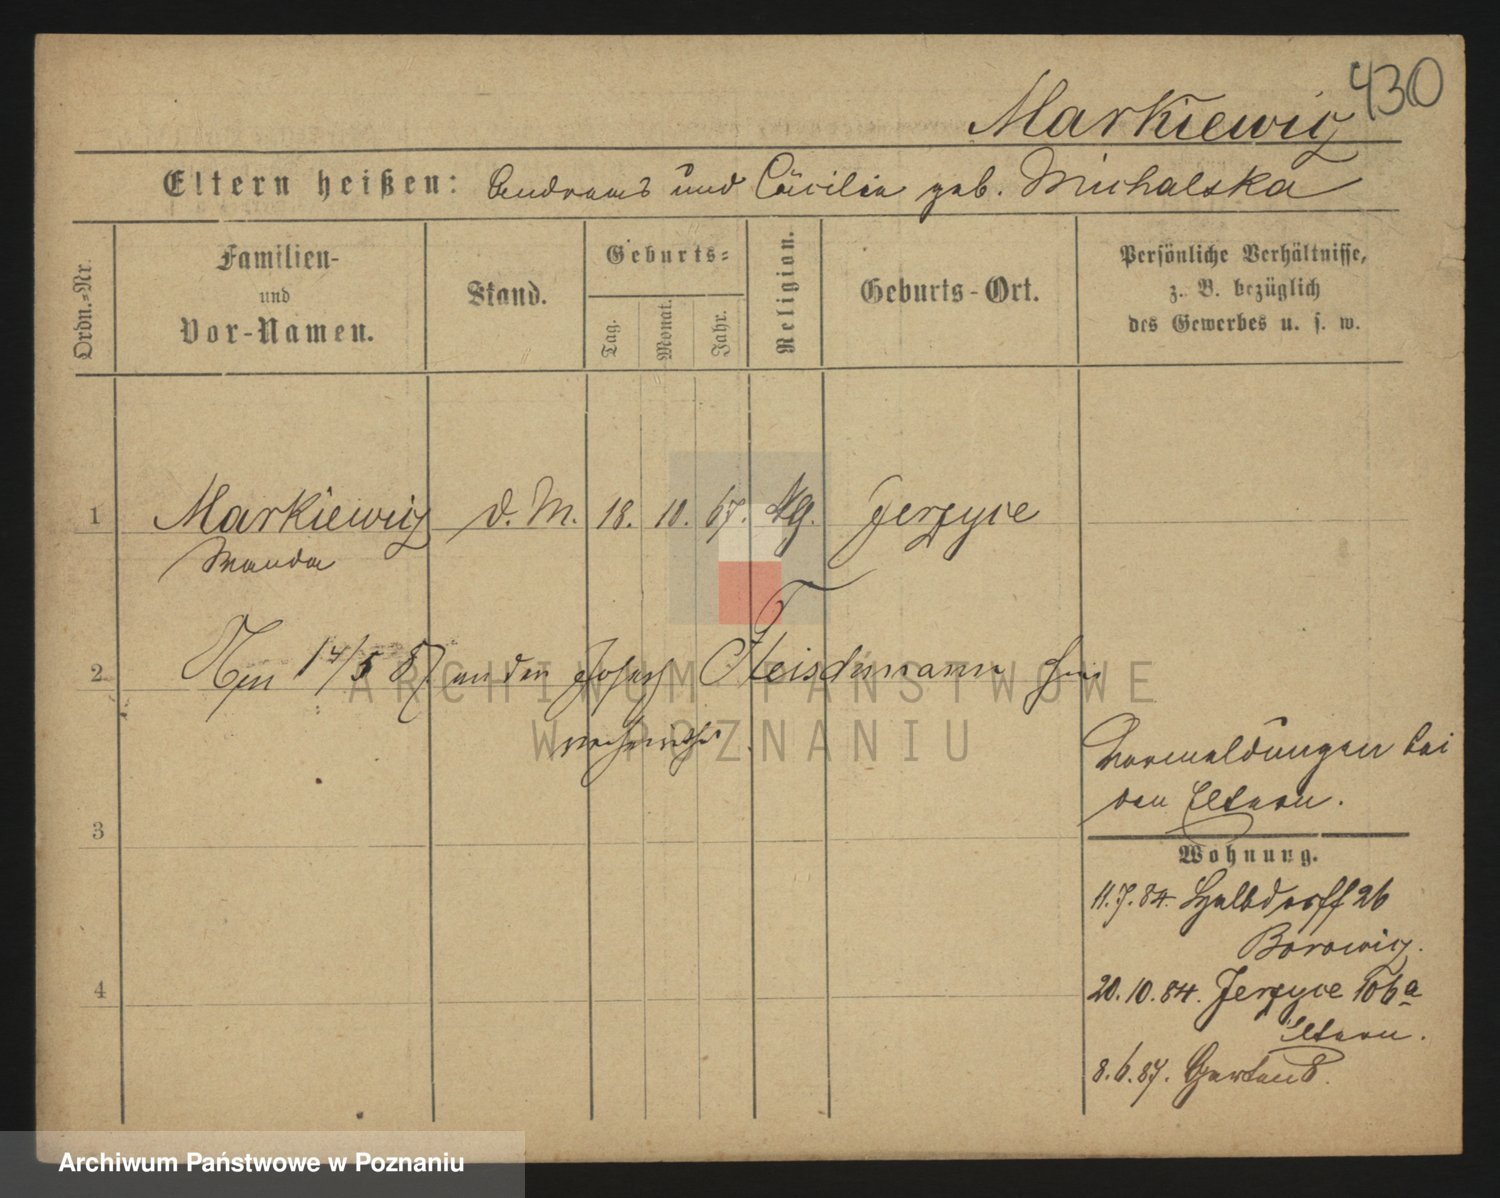 430
Markiewicz
Eltern heißen: Andreas und Cäcilie geb. Michalska
Ordn.-Nr.
Familien-
und
Vor-Namen.
Stand.
Geburts-
Tag.
Monat.
Jahr.
Religion.
Geburts-Ort.
Persönliche Verhältnisse,
z. B. bezüglich
des Gewerbes u. s. w.
1 Markiewicz d. M. 18. 10. 67. kg. Jerzyce
Wanda
2 14/5 87 an den Joseph Fleischmann hier
ARCHIWUM PAŃSTWOWE
W POZNANIU
Vormeldungen bei
den Eltern.
3
Wohnung.
11.7.84. Halbdorff 26
Borowicz.
4
20.10.84. Jerzyce 106a
Eltern.
8.6.87. Garten 8.
Archiwum Państwowe w Poznaniu